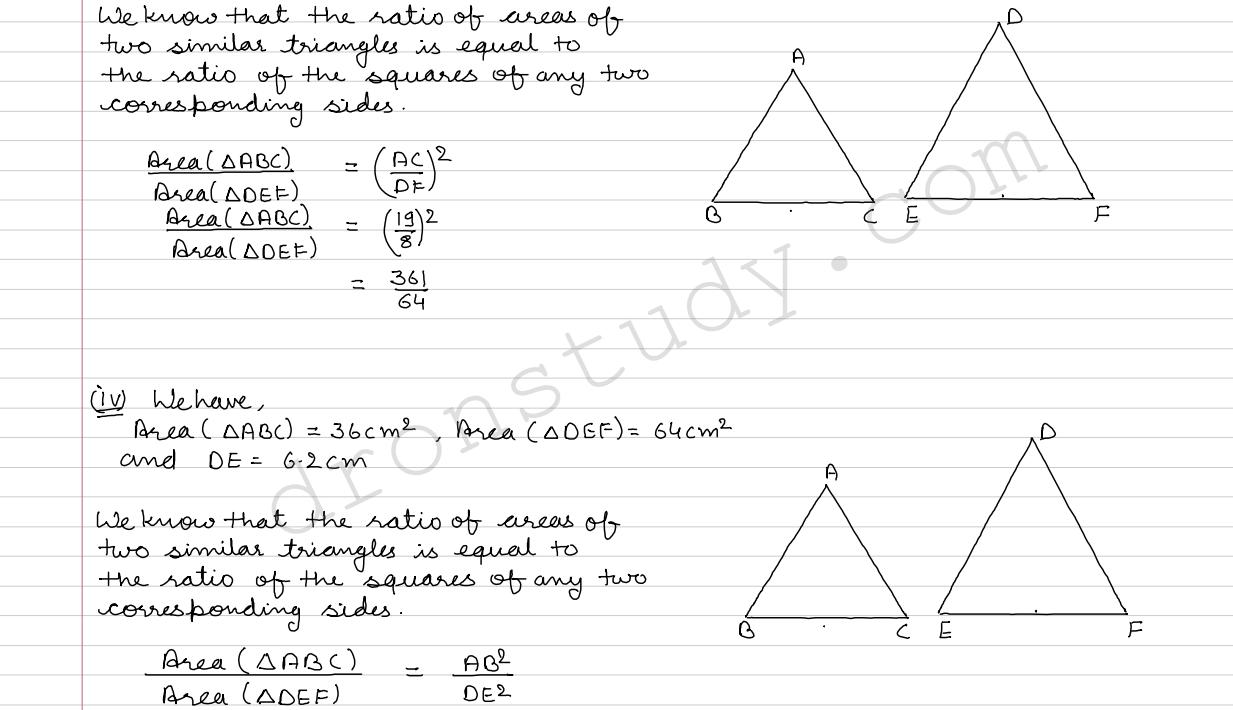 We know that the ratio of areas of
two similar triangles is equal to
the ratio of the squares of any two
corresponding sides.
Area(△ABC) / Area(△DEF) = (AC/DF)²
Area(△ABC) / Area(△DEF) = (19/8)²
= 361/64
A
B
C
D
E
F
(iv) We have,
Area (△ABC) = 36cm², Area (△DEF) = 64cm²
and DE = 6.2cm
We know that the ratio of areas of
two similar triangles is equal to
the ratio of the squares of any two
corresponding sides.
Area (△ABC) / Area (△DEF) = AB²/DE²
A
B
C
D
E
F
dronstudy.com